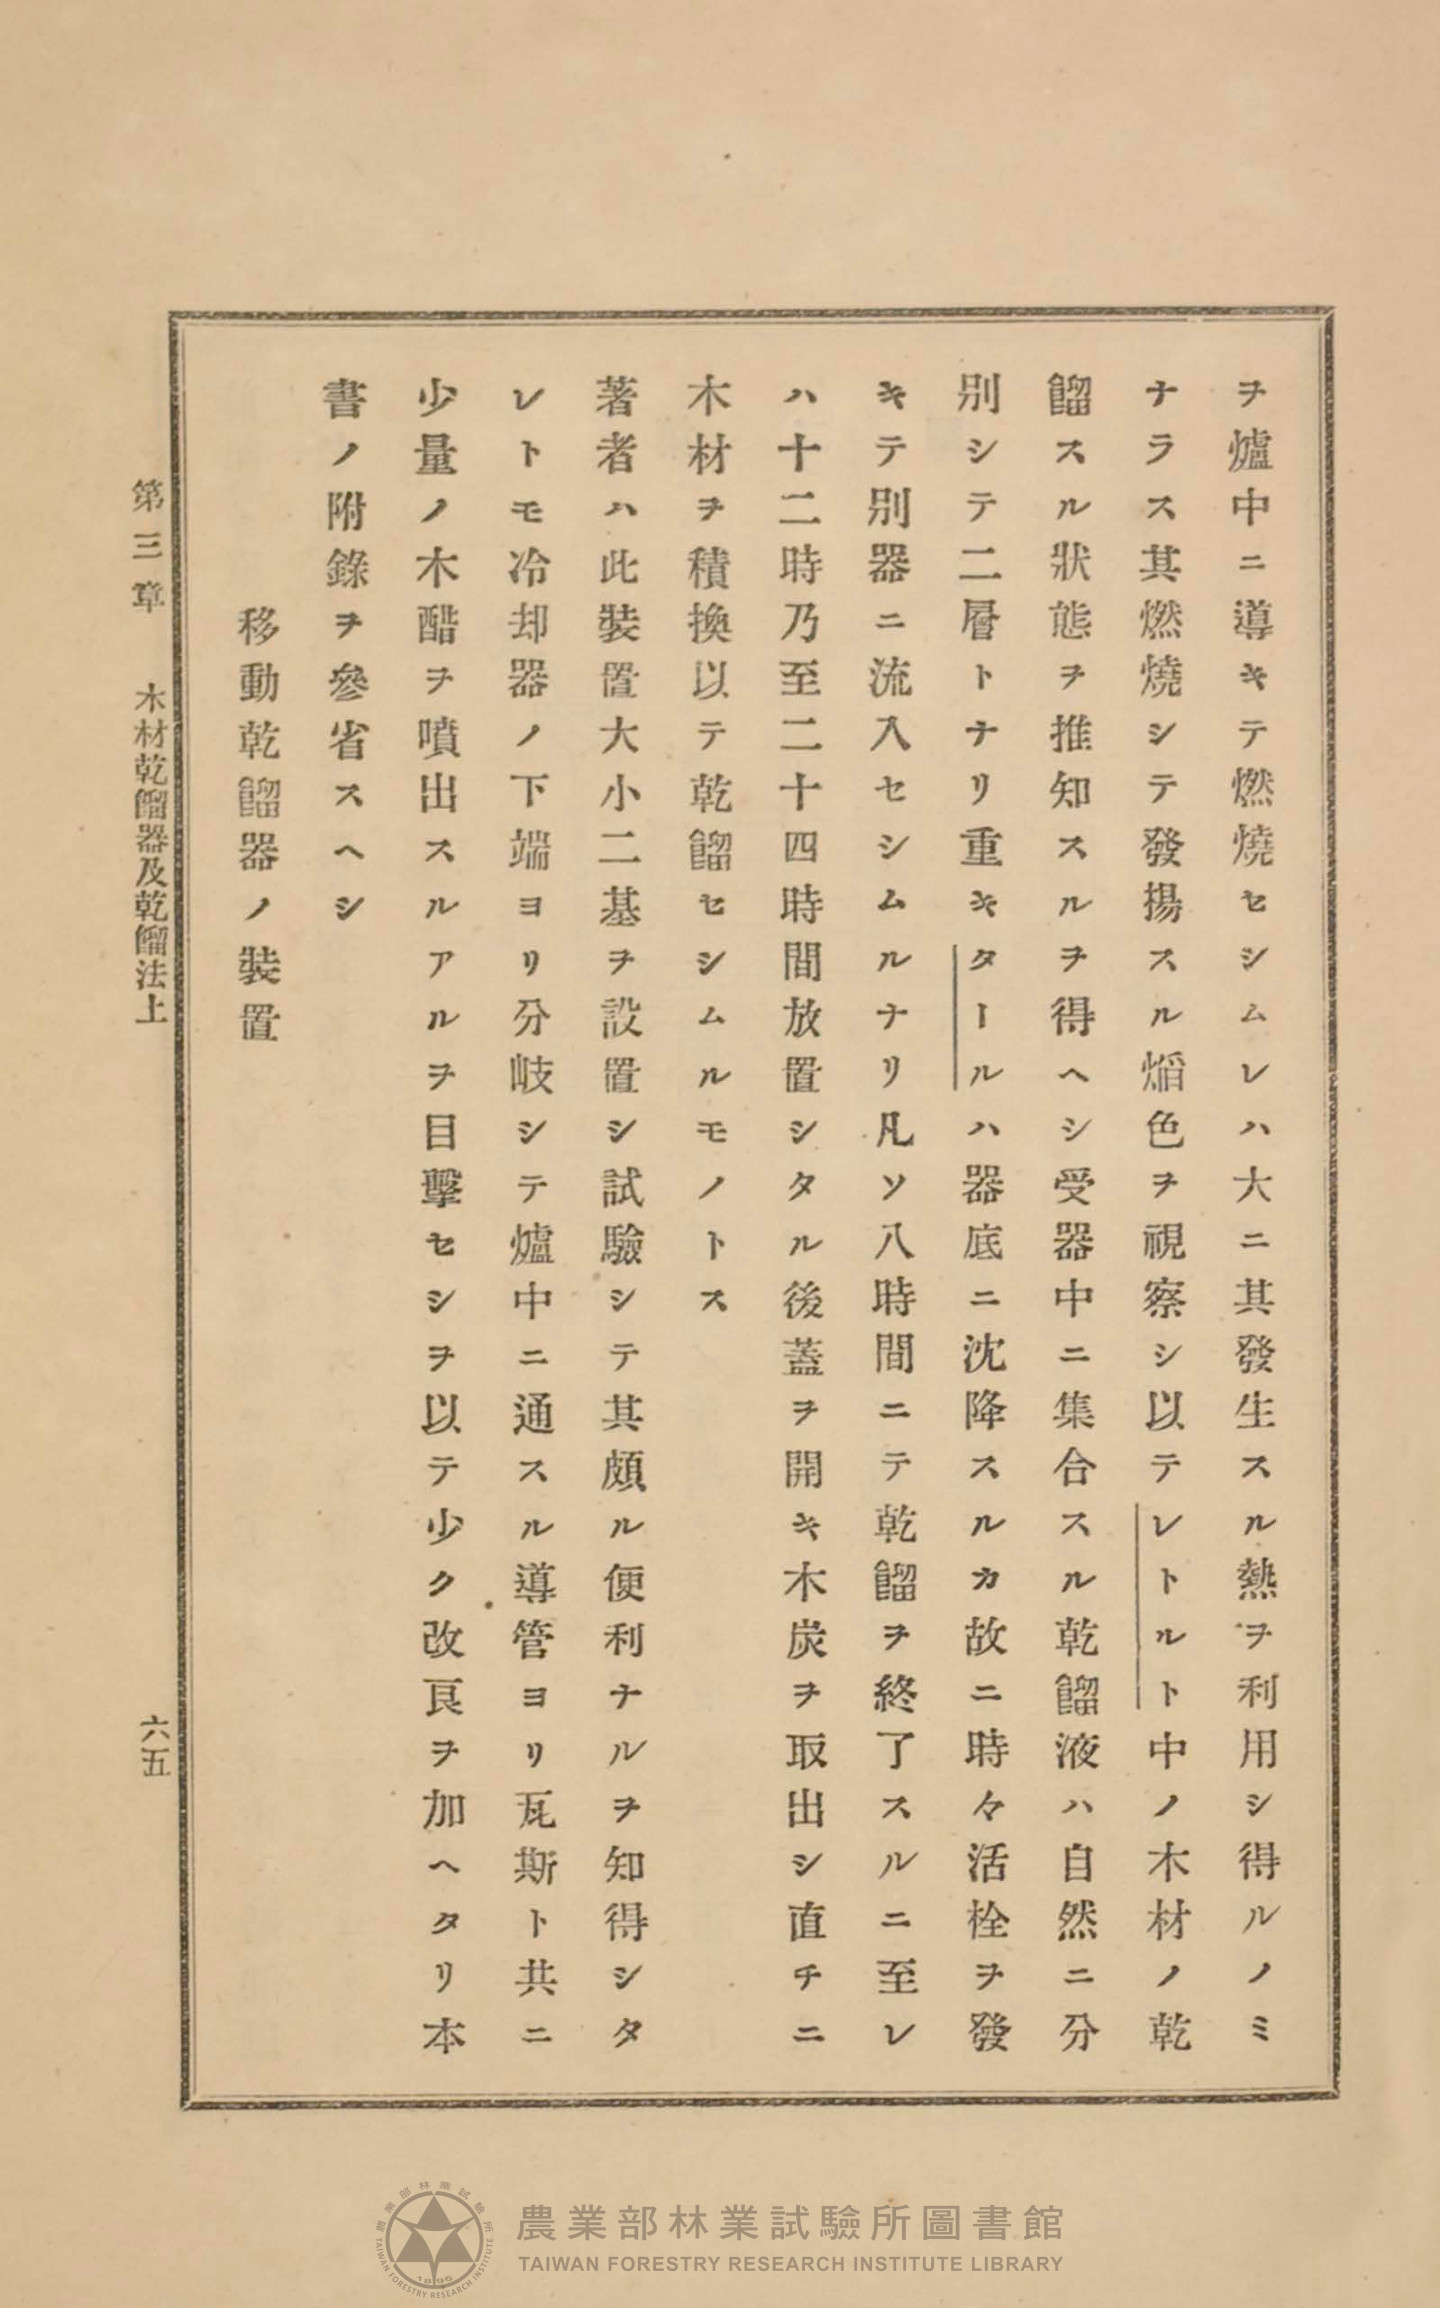 ヲ爐中ニ導キテ燃燒セシムレハ大ニ其發生スル熱ヲ利用シ得ルノミ
ナラス其燃燒シテ發揚スル焰色ヲ視察シ以テレトルト中ノ木材ノ乾
餾スル狀態ヲ推知スルヲ得ヘシ受器中ニ集合スル乾餾液ハ自然ニ分
別シテ二層トナリ重キタールハ器底ニ沈降スルカ故ニ時々活栓ヲ發
キテ別器ニ流入セシムルナリ凡ソ八時間ニテ乾餾ヲ終了スルニ至レ
ハ十二時乃至二十四時間放置シタル後蓋ヲ開キ木炭ヲ取出シ直チニ
木材ヲ積換以テ乾餾セシムルモノトス
著者ハ此裝置大小二基ヲ設置シ試驗シテ其頗ル便利ナルヲ知得シタ
レトモ冷却器ノ下端ヨリ分岐シテ爐中ニ通スル導管ヨリ瓦斯ト共ニ
少量ノ木醋ヲ噴出スルアルヲ目擊セシヲ以テ少ク改良ヲ加ヘタリ本
書ノ附錄ヲ參省スヘシ
移動乾餾器ノ裝置
第三章 木材乾餾器及乾餾法上
六五
農業部林業試驗所圖書館
TAIWAN FORESTRY RESEARCH INSTITUTE LIBRARY
農業部林業試驗所
TAIWAN FORESTRY RESEARCH INSTITUTE
1896